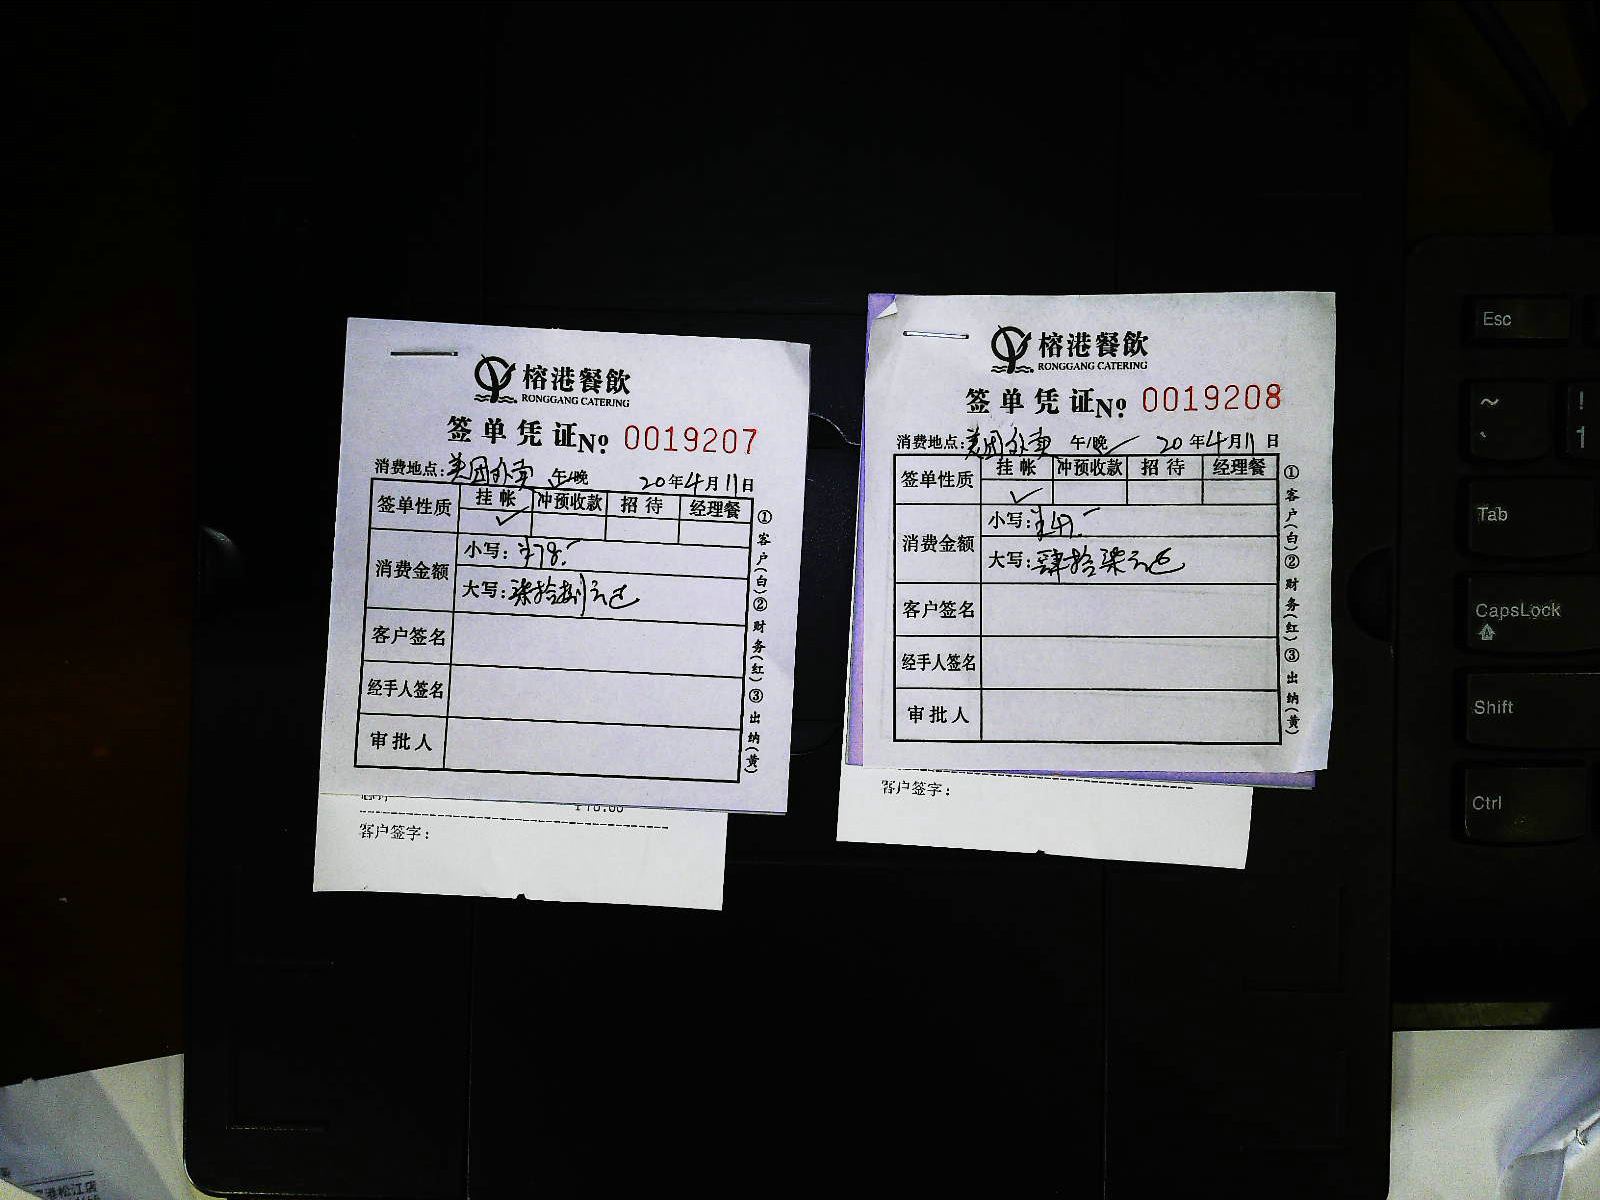 榕港餐飲
RONGGANG CATERING
签单凭证№ 0019207
消费地点:美团外卖 午/晚 20年4月11日
签单性质 挂帐 冲预收款 招待 经理餐
消费金额
小写:¥78.-
大写:柒拾捌元
客户签名
经手人签名
审批人
①客户(白)②财务(红)③出纳(黄)
客户签字:
榕港餐飲
RONGGANG CATERING
签单凭证№ 0019208
消费地点:美团外卖 午/晚 20年4月11日
签单性质 挂帐 冲预收款 招待 经理餐
消费金额
小写:¥47.-
大写:肆拾柒元
客户签名
经手人签名
审批人
①客户(白)②财务(红)③出纳(黄)
客户签字:
Esc
~ !
` 1
Tab
CapsLock
Shift
Ctrl
港松江店